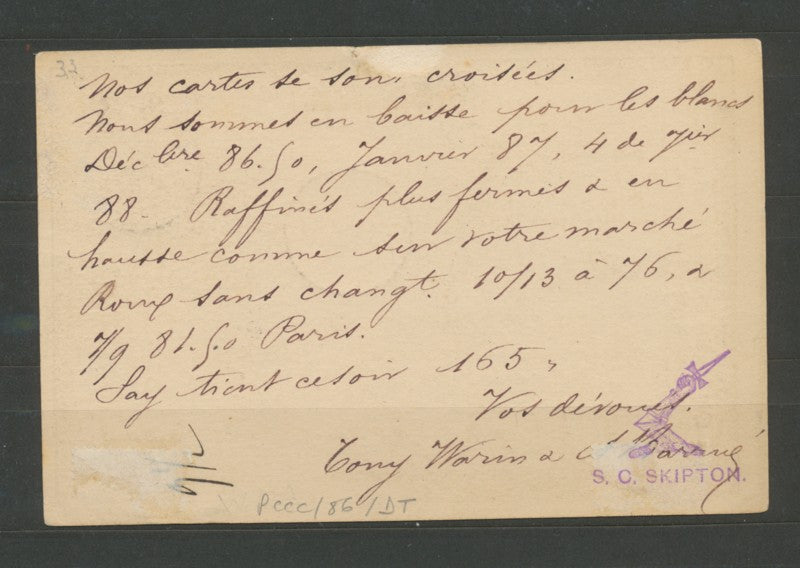 33
Nos cartes se sont croisées.
Nous sommes en baisse pour les blancs
Décbre 86.50, Janvier 87, 4 de Jier
88. Raffinés plus fermes & en
hausse comme sur votre marché
Roux sans changt. 10/13 à 76, &
7/9 81.50 Paris.
Say tient ce soir 165 "
Vos dévoués.
Tony Warin &
S. C. SKIPTON.
PCCC/86/DT